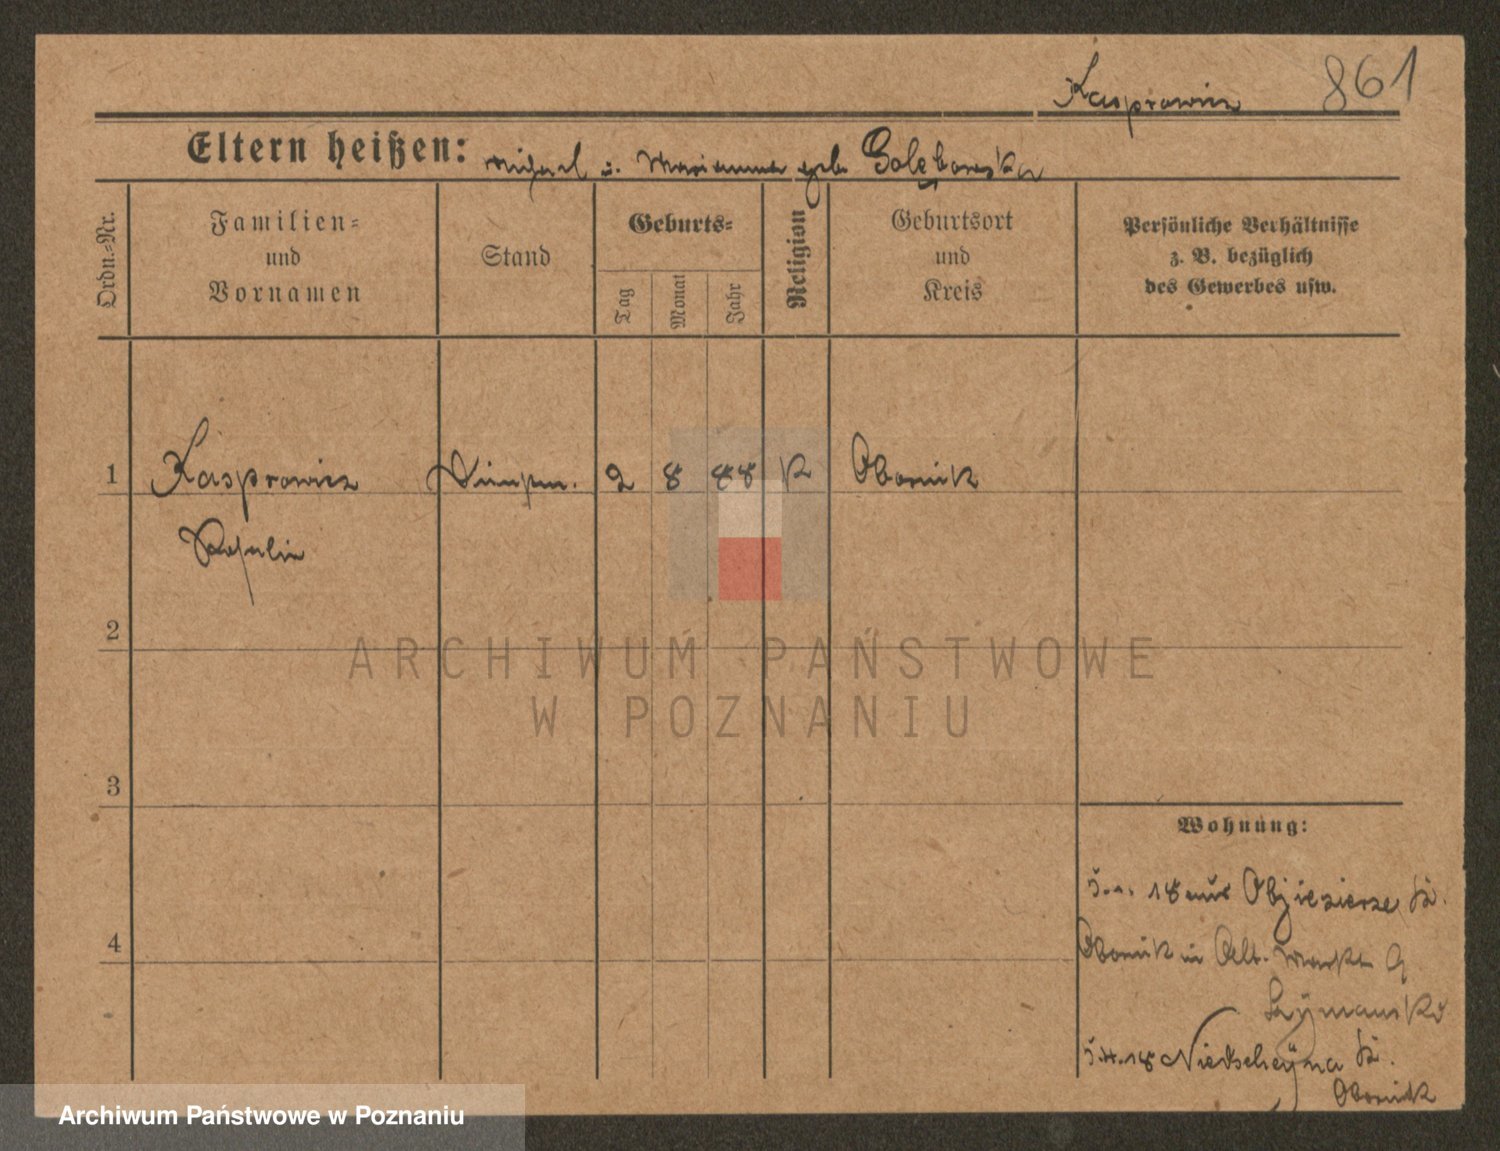 Kasprowicz 861
Eltern heißen: Michael u. Marianna geb. Golębowska
Ordn.-Nr.
Familien-
und
Vornamen
Stand
Geburts-
Tag
Monat
Jahr
Religion
Geburtsort
und
Kreis
Persönliche Verhältnisse
z. B. bezüglich
des Gewerbes usw.
1 Kasprowicz 2 8 88 K Obornik
2
3
4
Wohnung:
18 aus Objezierze Kr.
Obornik in Alt. Markt 9
Szymanski
18 Nietscheyna Kr.
Obornik
ARCHIWUM PAŃSTWOWE
W POZNANIU
Archiwum Państwowe w Poznaniu